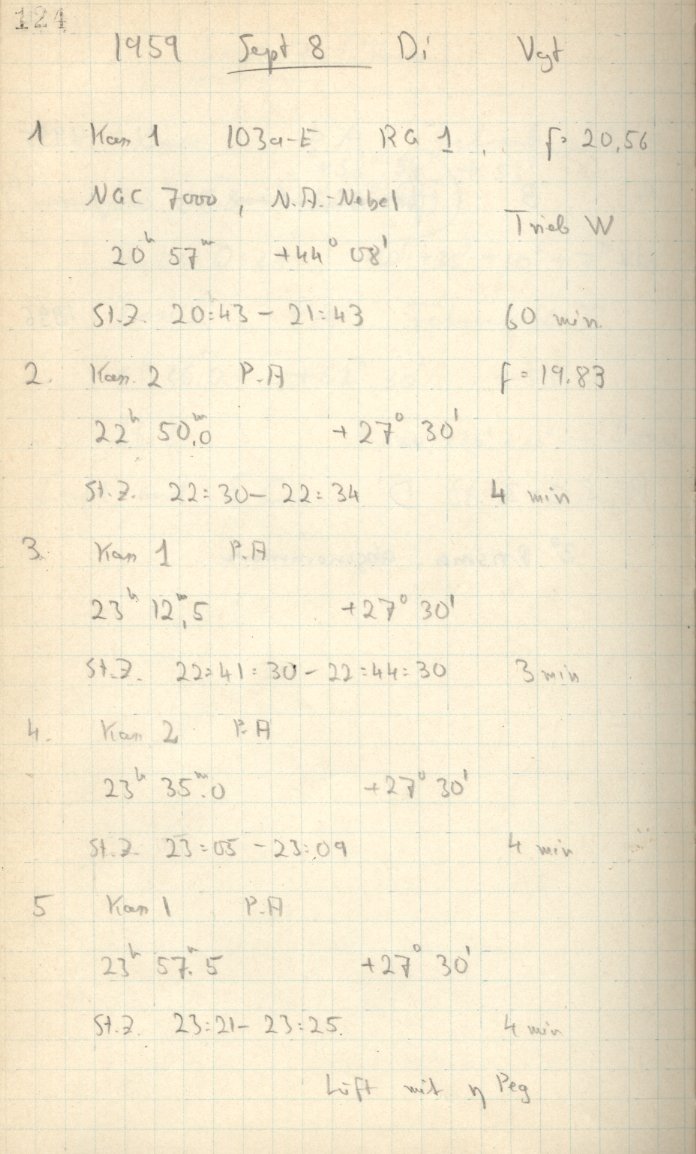 124
1959 Sept 8 Di Vgt
1 Kas 1 103a-E RG 1. f= 20,56
NGC 7000, N.A.-Nebel
Trieb W
20ʰ 57ᵐ +44° 08'
St.Z. 20:43 – 21:43 60 min.
2. Kas. 2 P.A f = 19.83
22ʰ 50ᵐ,0 +27° 30'
St.Z. 22:30 – 22:34 4 min
3. Kas 1 P.A
23ʰ 12ᵐ,5 +27° 30'
St.Z. 22:41:30 – 22:44:30 3 min
4. Kas 2 P.A
23ʰ 35ᵐ.0 +27° 30'
St.Z. 23:05 – 23:09 4 min
5 Kas 1 P.A
23ʰ 57ᵐ.5 +27° 30'
St.Z. 23:21 – 23:25. 4 min
mit η Peg